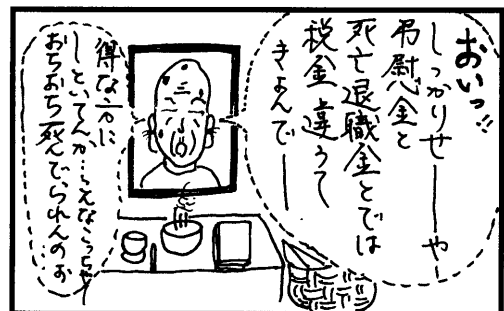 おいっ!!
しっかりせーーーやー
弔慰金と
死亡退職金とでは
税金違うて
きよんでーー
得な方に
しといてんか…そんなこっちゃ
おちおち死んで、られんのぉ